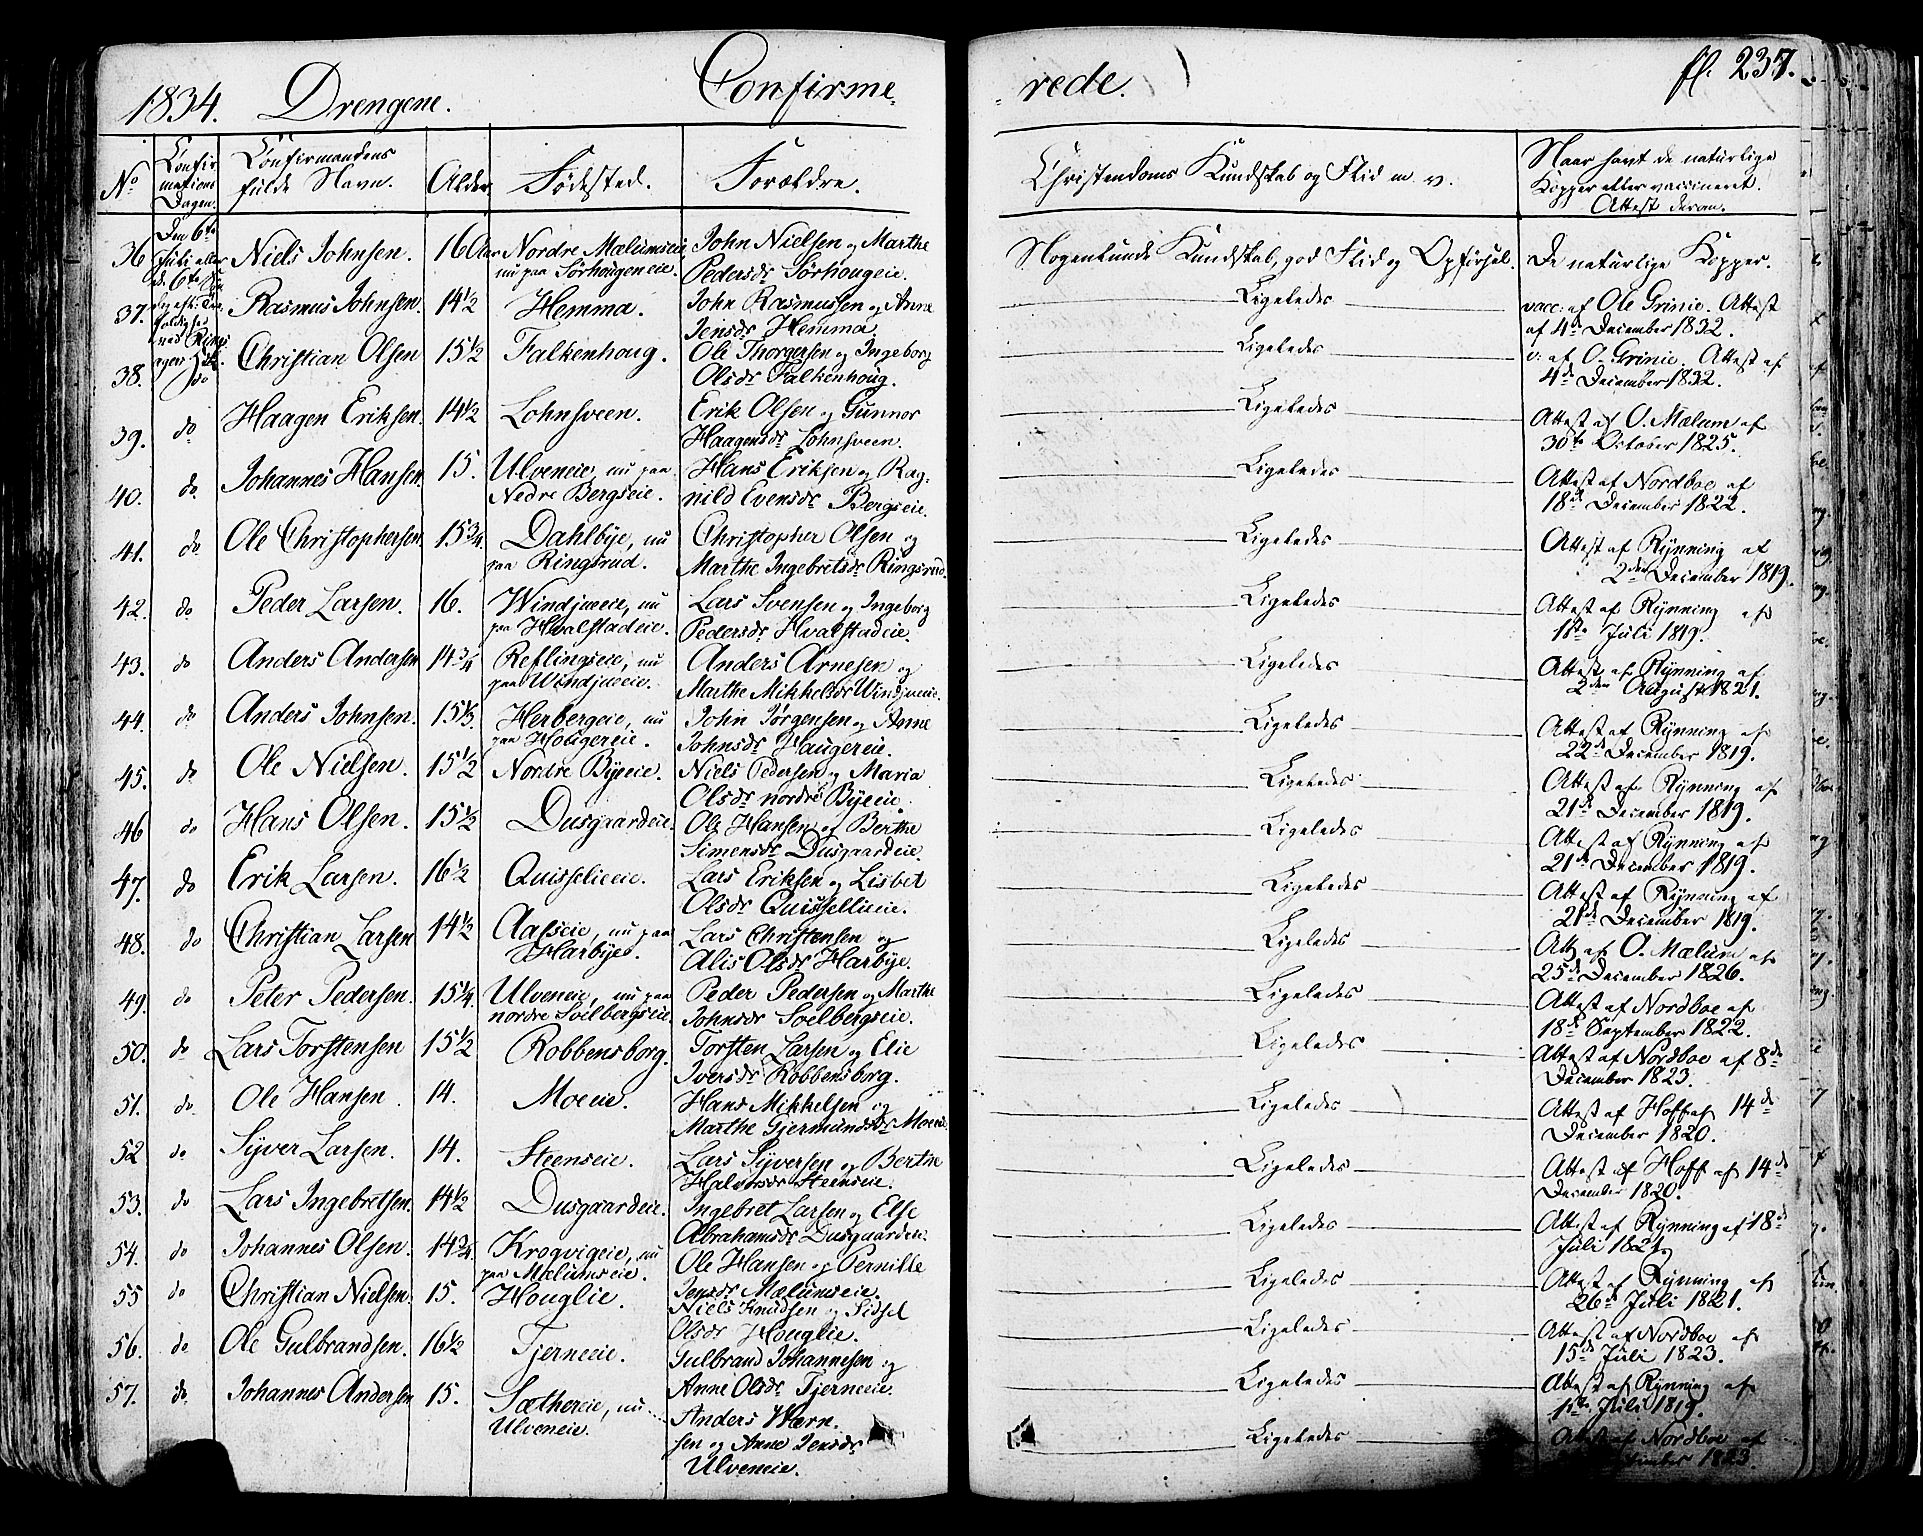 1834. Drengene. Confirme-
No
Confir
mations
Dagen.
Confirmandens
fulde Navn.
Alder
Fødested.
Forældre.
36 Den 6te Juli Niels Johnsen. 16 Aar Nordre Mælumseie, John Nielsen og Marthe
nu paa Sørhougeneie. Pedersdr Sørhougeie.
37. Rasmus Johnsen. 14½ Hemma. John Rasmussen og Anne
Jensdr Hemma.
38. do Christian Olsen 15½ Falkenhoug. Ole Thorgersen og Ingeborg
Olsdr Falkenhoug.
39. do Haagen Eriksen. 14½ Lohnsveen. Erik Olsen og Gunnor
Haagensdr Lohnsveen.
40. do Johannes Hansen 15. Ulveneie, nu paa Hans Eriksen og Rag-
Nedre Bergseie. nild Evensdr Bergseie.
41. do Ole Christophersen. 15¾ Dahlbye, nu Christopher Olsen og
paa Ringsrud. Marthe Ingebretsdr Ringsrud.
42. do Peder Larsen. 16. Windjueie, nu Lars Svensen og Ingeborg
paa Hvalstadeie. Pedersdr Hvalstadeie.
43. do Anders Andersen 14¾ Reflingseie, nu Anders Arnesen og
paa Windjueie. Marthe Mikkelsdr Windjueie.
44. do Anders Johnsen. 15⅓ Herbergeie, nu John Jørgensen og Anne
paa Hougereie. Johnsdr Haugereie.
45. do Ole Nielsen. 15½ Nordre Byeeie. Niels Pedersen og Maria
Olsdr nordre Byeeie.
46 do Hans Olsen. 15½ Dusgaardeie. Ole Hansen og Berthe
Simensdr Dusgaardeie.
47. do Erik Larsen. 16½ Quisselieeie. Lars Eriksen og Lisbet
Olsdr Quissellieie.
48. do Christian Larsen 14½ Aasseie, nu paa Lars Christensen og
Harbyes. Alis Olsdr Harbye.
49. do Peter Pedersen. 15¼. Ulveneie, nu paa Peder Pedersen og Marthe
nordre Soelbergseie. Johnsdr Soelbergseie.
50. do Lars Torstensen 15½ Robbensborg. Torsten Larsen og Elie
Iversdr Robbensborg.
51. do. Ole Hansen. 14. Moeeie. Hans Mikkelsen og
Marthe Gjermundsdr Moeeie
52 do Syver Larsen. 14. Steenseie. Lars Syversen og Berthe
Halvorsdr Steenseie.
53. do Lars Ingebretsen. 14½ Dusgaardeie. Ingebret Larsen og Else
Abrahamsdr Dusgaardeie.
54. do Johannes Olsen. 14¾ Krogvigeie, nu Ole Hansen og Pernille
paa Mælumseie. Jensdr Mælumseie.
55 do Christian Nielsen. 15. Houglie. Niels Knudsen og Sidsel
Olsdr Houglie.
56. do Ole Gulbrandsen. 16½ Tjerneeie. Gulbrand Johannesen og
Anne Olsdr Tjerneeie.
57. do Johannes Andersen 15. Sæthereie, nu Anders
Ulveneie. sen og Anne Jensdr
Ulveneie.
rede. fl. 237.
Christendoms Kundskab og Flid m. v.
Naar havt de naturlige
Kopper eller vaccineret.
Attest derom.
Nogenlunde Kundskab, god Flid og Opførsel. De naturlige Kopper.
Ligeledes vacc: af Ole Grinie. Attest
af 4de December 1832.
Ligeledes v: af O. Grinie. Attest af
4de December 1832.
Ligeledes Attest af O. Mælum af
30te October 1825.
Ligeledes Attest af Nordboe af
18de December 1822.
Ligeledes Attest af Rynning af
2den December 1819.
Ligeledes Attest af Rynning af
1ste Juli 1819.
Ligeledes Attest af Rynning af
2den August 1821.
Ligeledes Attest af Rynning af
22de December 1819.
Ligeledes Attest af Rynning af
21de December 1819.
Ligeledes Attest af Rynning af
21de December 1819.
Ligeledes Attest af Rynning af
21de December 1819.
Ligeledes Att. af O. Mælum af
25de December 1826.
Ligeledes Attest af Nordboe af
18de September 1822.
Ligeledes Attest af Nordboe af 8de
December 1823.
Ligeledes Attest af Hoff af 14de
December 1820.
Ligeledes Attest af Hoff af 14de
December 1820.
Ligeledes Attest af Rynning af 18de
Juli 1821
Ligeledes Attest af Rynning af
26de Juli 1821.
Ligeledes Attest af Nordboe af
15de Juli 1823.
Ligeledes Attest af Rynning af
1ste Juli 1819.
Ligeledes Attest af Nordboe af
1823.